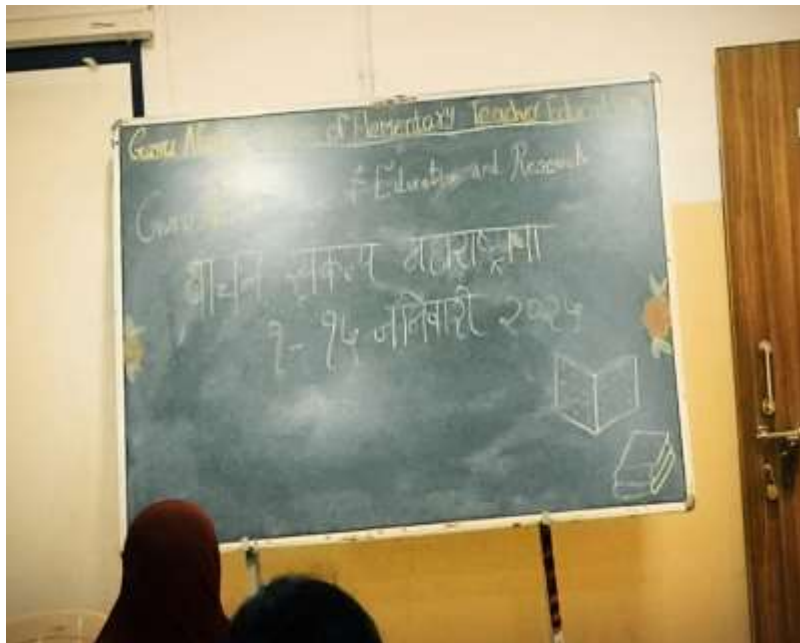 Guru of Elementary Teacher Education
Guru of Education and Research
वाचन संकल्प महाराष्ट्राचा
१-१५ जानेवारी २०२५